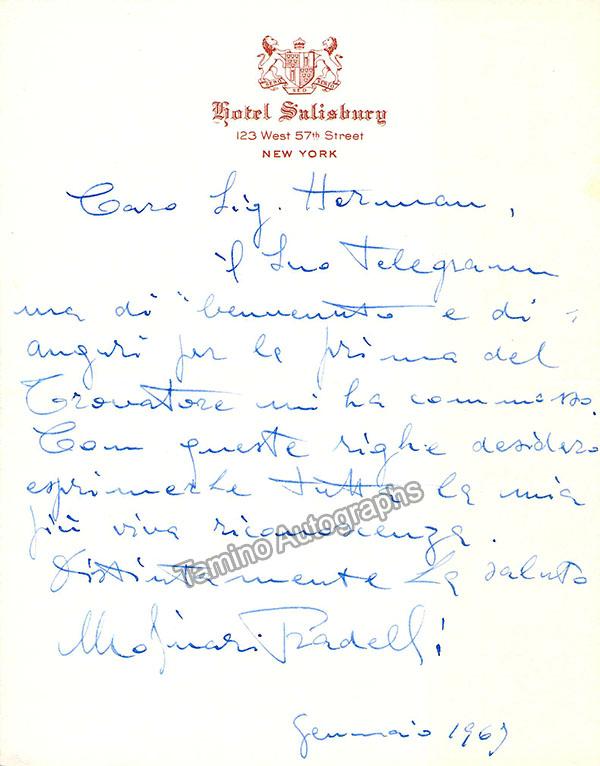 Hotel Salisbury
123 West 57th Street
NEW YORK
Caro Sig. Herman,
il Suo Telegram
ma di "benvenuto e di
auguri per la prima del
Trovatore mi ha commosso.
Com queste righe desidero
esprimerle tutta la mia
più viva riconoscenza.
Distintamente La saluto
Molinari Pradelli
Gennaio 196
Tamino Autographs